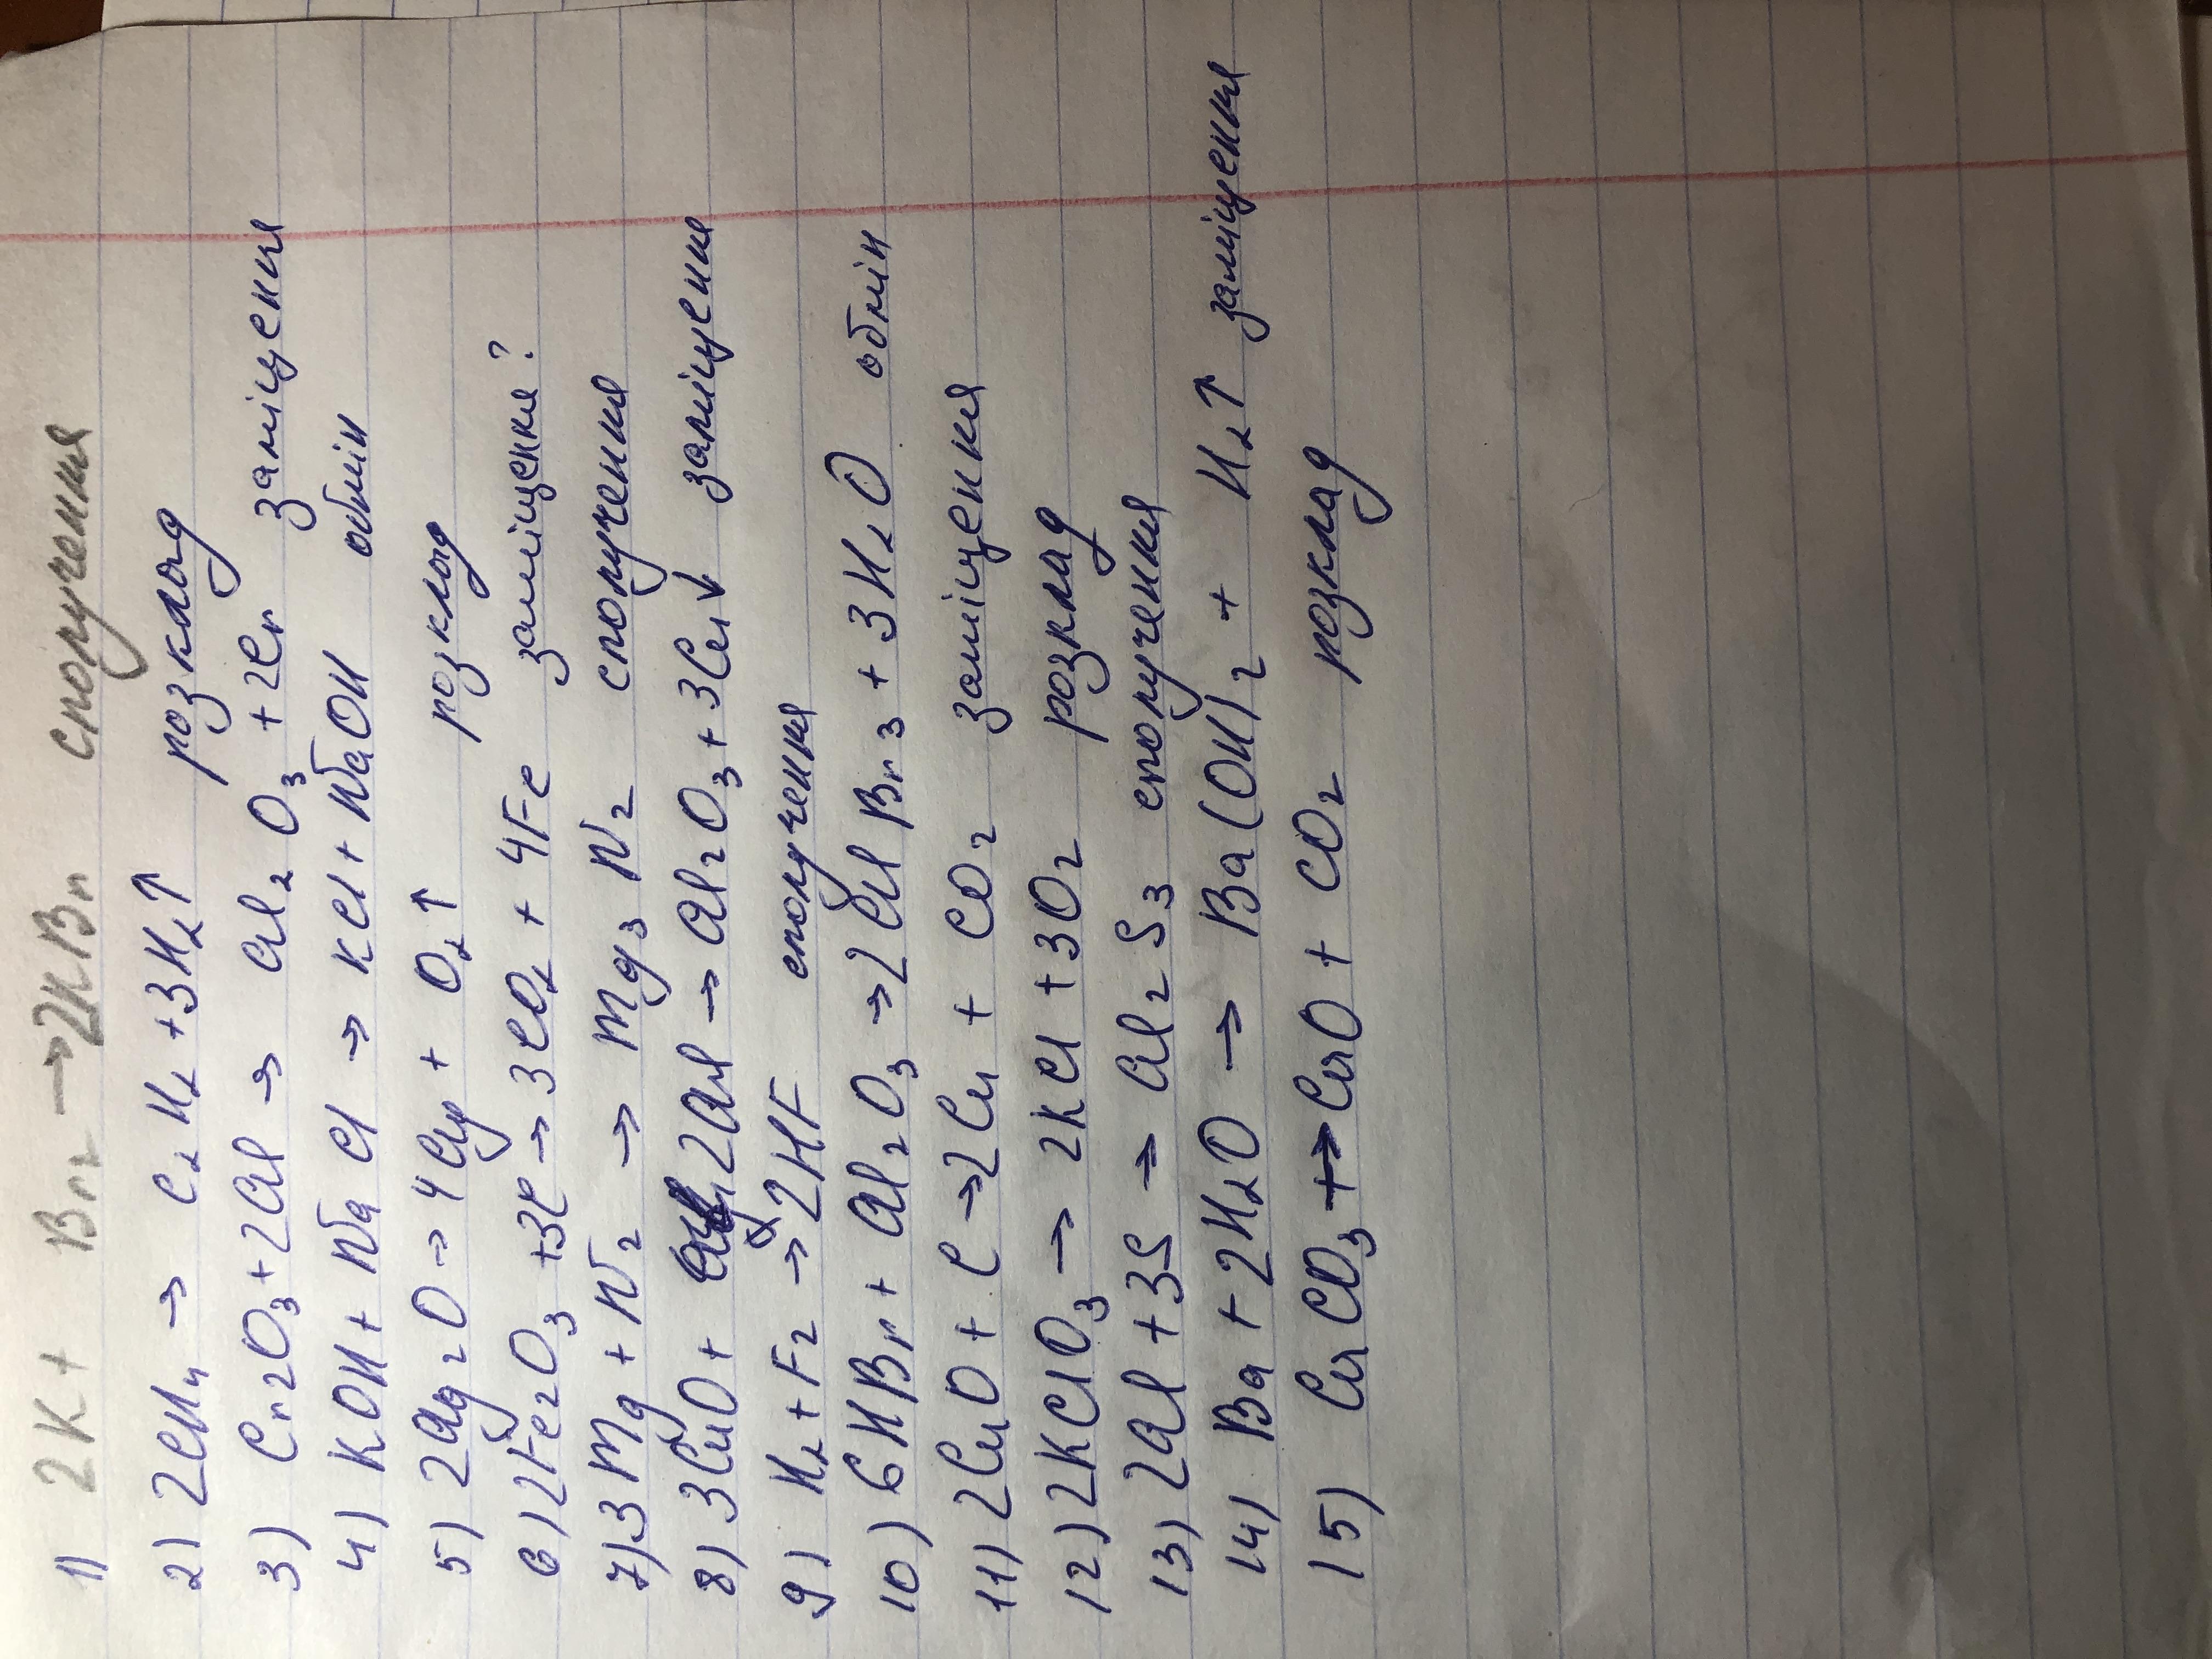 1) 2K + Br₂ → 2KBr сполучення
2) 2CH₄ → C₂H₂ + 3H₂↑ розклад
3) Cr₂O₃ + 2Al → Al₂O₃ + 2Cr заміщення
4) KOH + NaCl → KCl + NaOH обмін
5) 2Ag₂O → 4Ag + O₂↑ розклад
6) 2Fe₂O₃ + 3C → 3CO₂ + 4Fe заміщення?
7) 3Mg + N₂ → Mg₃N₂ сполучення
8) 3CuO + 2Al → Al₂O₃ + 3Cu↓ заміщення
9) H₂ + F₂ → 2HF сполучення
10) 6HBr + Al₂O₃ → 2AlBr₃ + 3H₂O обмін
11) 2CuO + C → 2Cu + CO₂ заміщення
12) 2KClO₃ → 2KCl + 3O₂ розклад
13) 2Al + 3S → Al₂S₃ сполучення
14) Ba + 2H₂O → Ba(OH)₂ + H₂↑ заміщення
15) CuCO₃ → CuO + CO₂ розклад